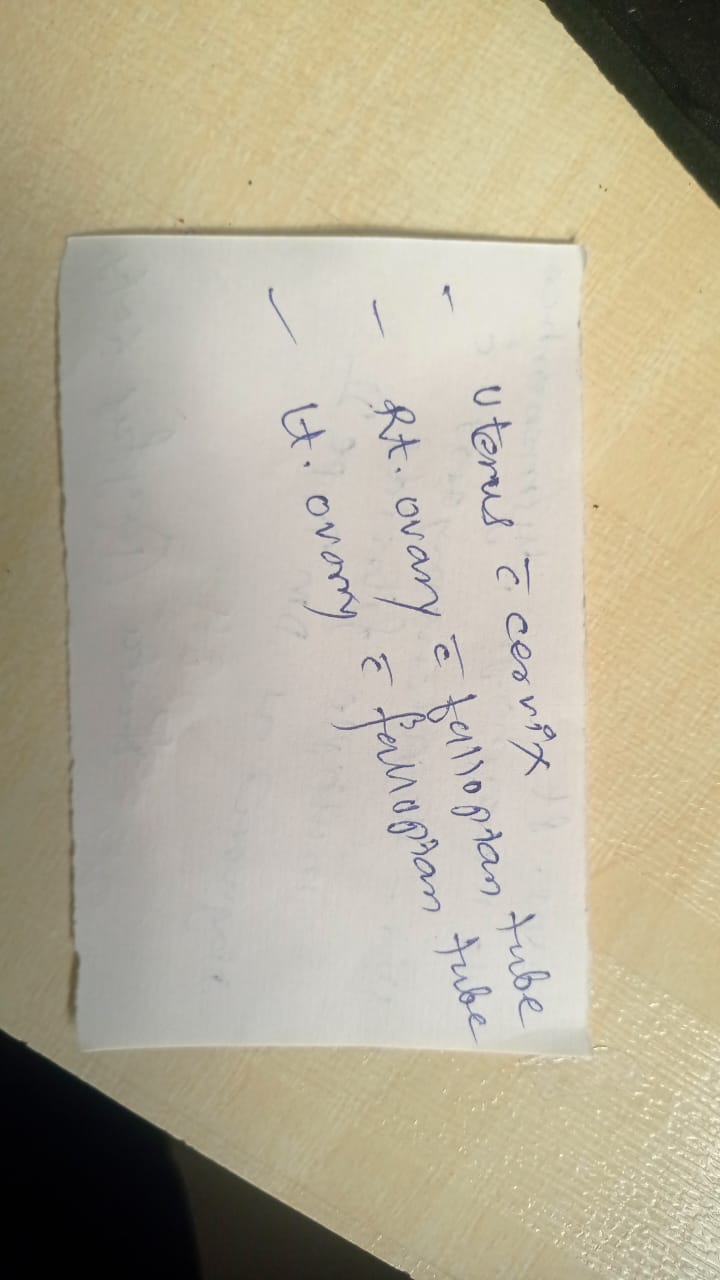 - Uterus c̄ cervix
- Rt. ovary c̄ fallopian tube
- Lt. ovary c̄ fallopian tube